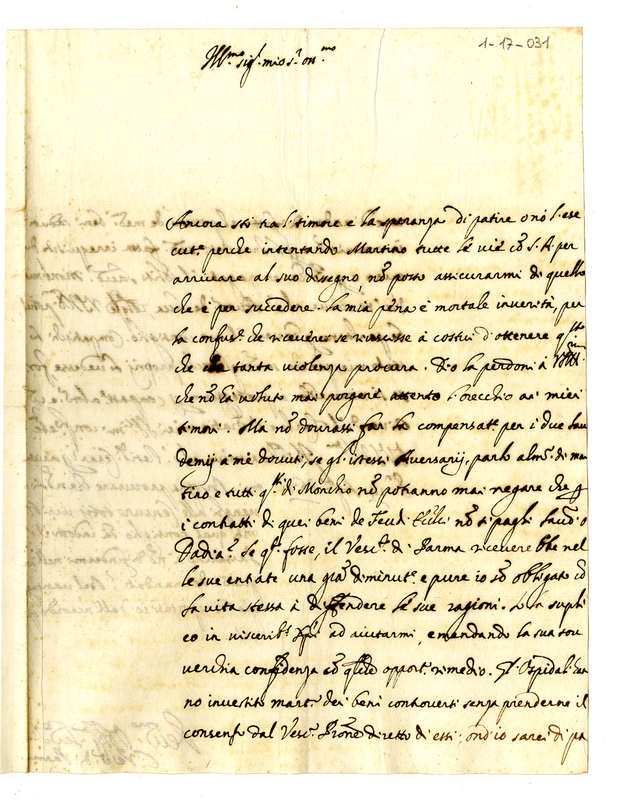 1-17-031
Ill.mo sig.r mio s.r oss.mo
Ancora stò tra l'timore e la speranza di patire o nò l'ese
cut.e perche intentando Martino tutte le vie cõ S. A. per
arrivare al suo dissegno, nõ posso assicurarmi di quello
che è per succedere. la mia pena è mortale in verità, per
la confus.e che riceverei se riuscisse à costui d'ottenere q.llo
che con tanta violenza procura. Dio la perdoni à
che nõ hà voluto mai porgere attento l'orecchio ai miei
timori. Mà nõ dovrassi far la compensat.e per i due lau
demij à mè dovuti, se gl'istessi Aversarij, parlo alm.o di mar
tino e tutti q.lli di Monchio nõ potranno mai negare che p
i contratti di quei beni de feudi Eccl.ci nõ si paghi laud.o
Se q.to fosse, il Vesc.o di Parma ricevere bbe nel
le sue entrate una grã diminut.e e pure io sõ obligato cõ
la vita stessa à diffendere le sue ragioni. la supli
co in visceribus Xpi ad aiutarmi, e mandando la sua sou
verchia confidenza cõ q.lche opport.o rimedio. Gl'Ospidal.i han
no investito mart.o dei beni controversi senza prenderne il
consenso dal Vesc.o Prõne diretto di essi; ond'io sarei di pa